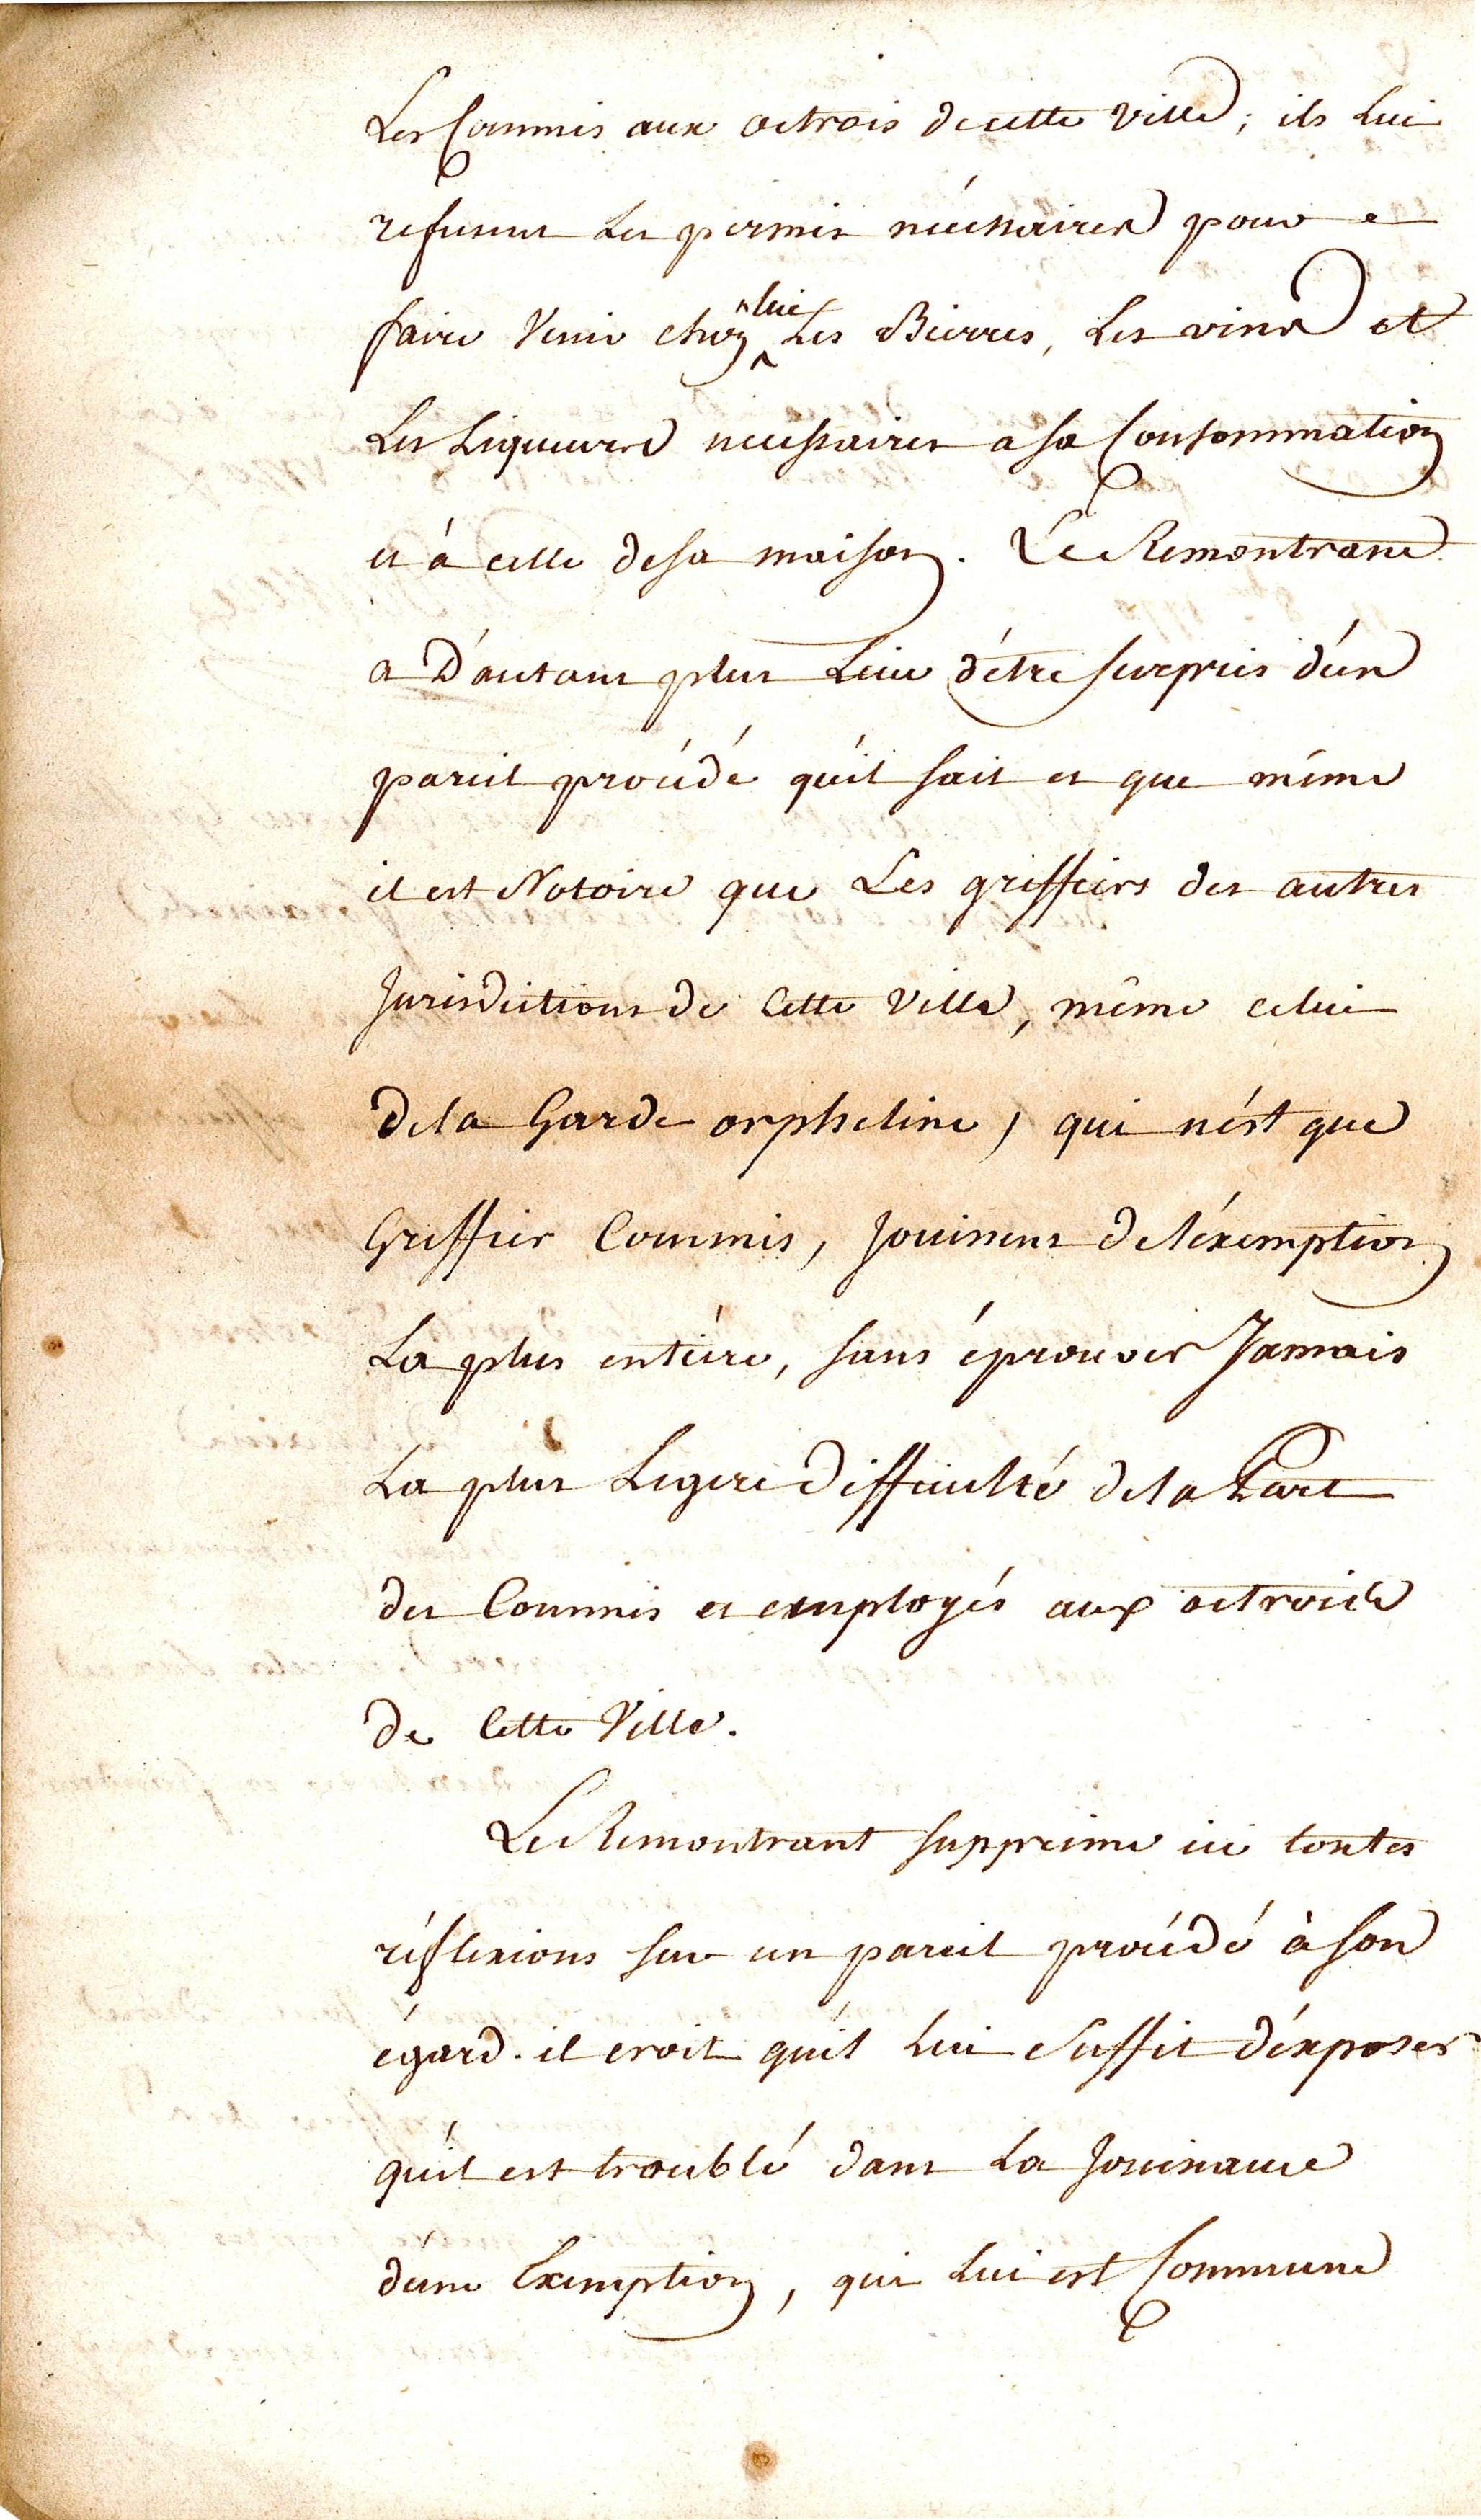 Les Commis aux octrois de cette ville; ils lui
refusent les permis nécessaires pour
faire venir chez lui les Bierres, les vins et
les liqueurs necessaires a sa Consommation
et à celle de sa maison. Le Remontrant
a D'autant plus lieu d'être surpris d'un
pareil procédé qu'il sait et que même
il est Notoire que Les greffiers des autres
Jurisdictions de Cette Ville, même celui
de la Garde orpheline, qui n'ést que
Greffier Commis, jouissent de l'éxemption
La plus entiére, sans éprouver Jamais
La plus Legere Difficulté de la Part
des Commis et employés aux octrois
de Cette Ville.
Le Remontrant supprime ici toutes
réflexions sur un pareil procédé à son
égard. il croit qu'il lui suffit d'éxposer
qu'il est troublé dans la jouissance
d'une Exemption, qui lui est Commune